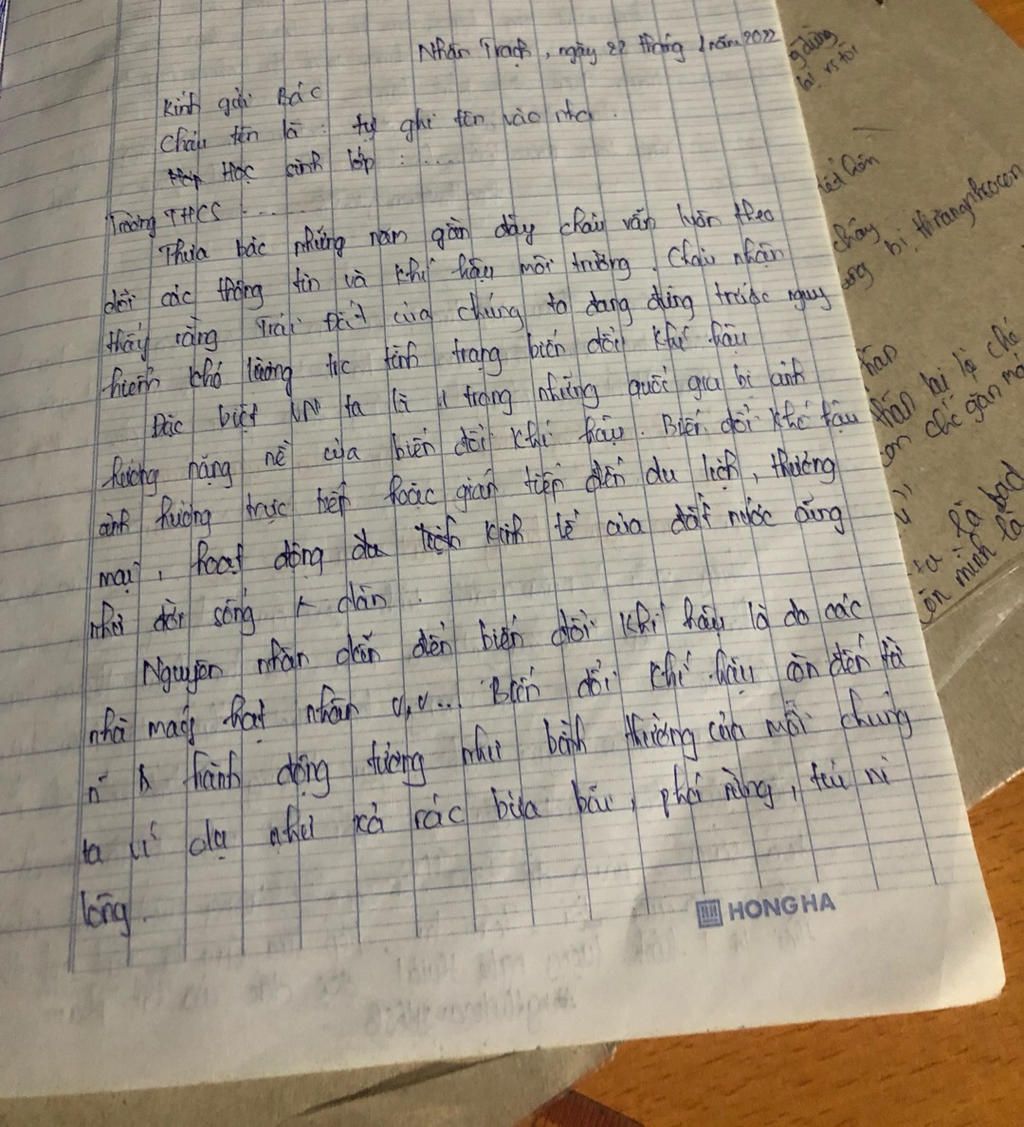 Nhân Trạch, ngày 22 tháng 1 năm 2022
Kính gửi Bác
Cháu tên là : tự ghi tên vào nha.
Học sinh lớp : ....
Trường THCS ....
Thưa bác những năm gần đây cháu vẫn luôn theo
dõi các thông tin và khí hậu môi trường. Cháu nhận
thấy rằng Trái Đất của chúng ta đang đứng trước nguy
hiểm khó lường tự tình trạng biến đổi khí hậu
Đặc biệt VN ta là 1 trong những quối gia bị ảnh
hưởng nặng nề của biến đổi khí hậu. Biến đổi khí hậu
ảnh hưởng trực tiếp hoặc gián tiếp đến du lịch, thương
mại, hoạt động kinh tế của đất nước cũng
như đời sống dân.
Nguyên nhân dẫn đến biến đổi khí hậu là do các
nhà máy hạt nhân v,v... Biến đổi khí hậu còn đến từ
hành động tưởng như bình thường của mỗi chúng
ta ví dụ như xả rác bừa bãi, phá rừng, túi ni
lông.
HONG HA
g dùng
lại vs tôi
chấy
ong bị
hắn lại là chỉ
on chỉ gần
ra là bad
ôn mình là